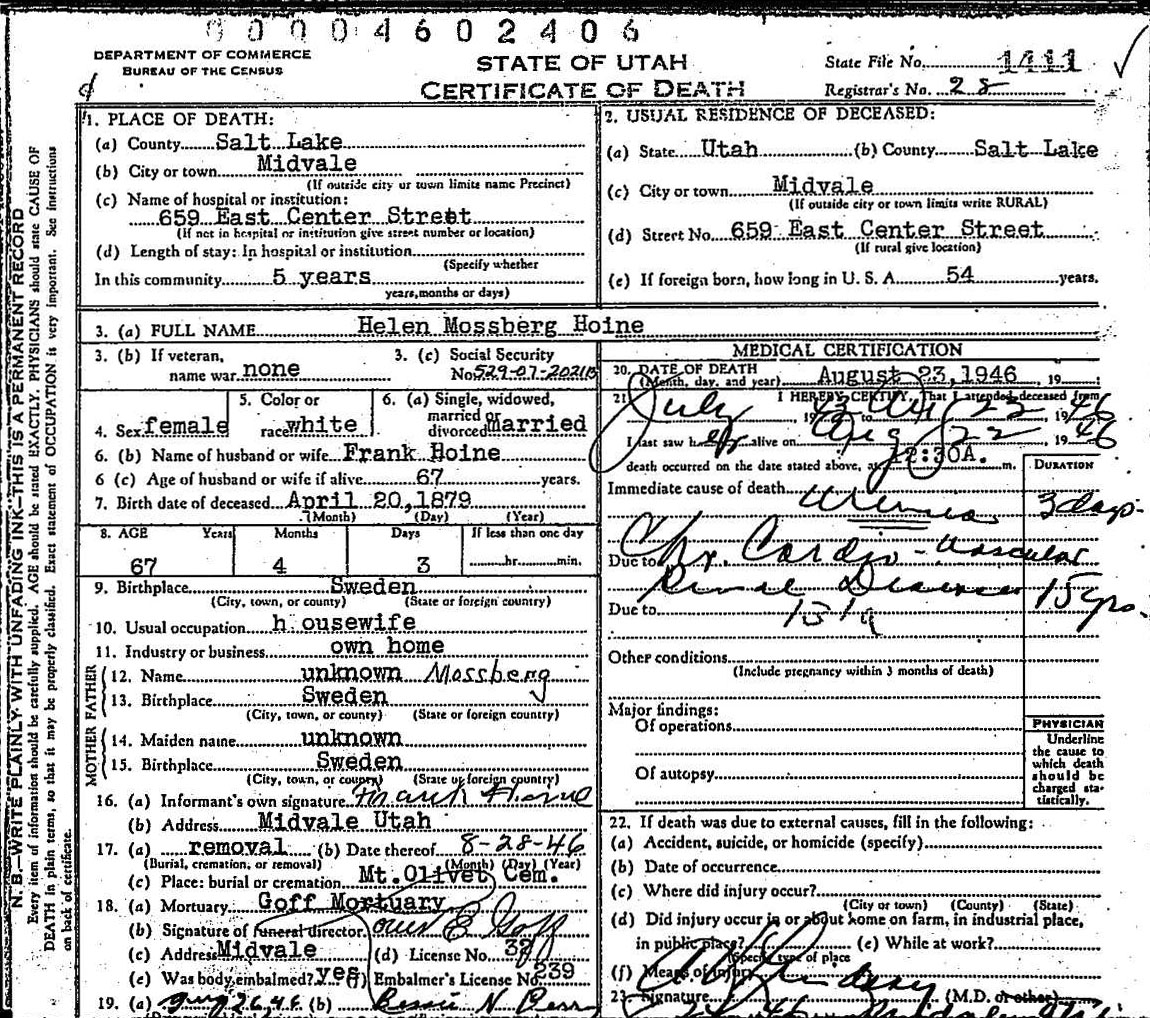 00004602406
DEPARTMENT OF COMMERCE
BUREAU OF THE CENSUS
STATE OF UTAH
CERTIFICATE OF DEATH
State File No. 1411
Registrar's No. 28
N. B.—WRITE PLAINLY WITH UNFADING INK—THIS IS A PERMANENT RECORD
Every item of information should be carefully supplied. AGE should be stated EXACTLY. PHYSICIANS should state CAUSE OF
DEATH in plain terms, so that it may be properly classified. Exact statement of OCCUPATION is very important. See instructions
on back of certificate.
1. PLACE OF DEATH:
(a) County Salt Lake
(b) City or town Midvale
(If outside city or town limits name Precinct)
(c) Name of hospital or institution:
659 East Center Street
(If not in hospital or institution give street number or location)
(d) Length of stay: In hospital or institution
(Specify whether
In this community 5 years
years, months or days)
2. USUAL RESIDENCE OF DECEASED:
(a) State Utah (b) County Salt Lake
(c) City or town Midvale
(If outside city or town limits write RURAL)
(d) Street No. 659 East Center Street
(If rural give location)
(e) If foreign born, how long in U. S. A. 54 years.
3. (a) FULL NAME Helen Mossberg Hoine
3. (b) If veteran,
name war none
3. (c) Social Security
No. 529-07-2021B
4. Sex female
5. Color or
race white
6. (a) Single, widowed,
married or
divorced married
6. (b) Name of husband or wife Frank Hoine
6 (c) Age of husband or wife if alive 67 years.
7. Birth date of deceased April 20,1879
(Month) (Day) (Year)
8. AGE Years Months Days If less than one day
67 4 3 hr. min.
9. Birthplace Sweden
(City, town, or county) (State or foreign country)
10. Usual occupation h ousewife
11. Industry or business own home
FATHER
12. Name unknown Mossberg
13. Birthplace Sweden
(City, town, or county) (State or foreign country)
MOTHER
14. Maiden name unknown
15. Birthplace Sweden
(City, town, or county) (State or foreign country)
16. (a) Informant's own signature Frank Hoine
(b) Address Midvale Utah
17. (a) removal (b) Date thereof 8-28-46
(Burial, cremation, or removal) (Month) (Day) (Year)
(c) Place: burial or cremation Mt.Olivet Cem.
18. (a) Mortuary Goff Mortuary
(b) Signature of funeral director Goff
(c) Address Midvale (d) License No. 32
(e) Was body embalmed? yes (f) Embalmer's License No. 239
19. (a) Aug 26 46 (b) Bessie N
MEDICAL CERTIFICATION
20. DATE OF DEATH
(Month, day, and year) August 23,1946 19
21. I HEREBY CERTIFY, That I attended deceased from
July 19 43 to Aug 23 1946
I last saw her alive on Aug 22, 1946
death occurred on the date stated above, at 12:30A. m.
DURATION
Immediate cause of death Uremia 3 days
Due to Chr. Cardio-Vascular
Renal Disease 15 yrs.
Due to 131a
Other conditions
(Include pregnancy within 3 months of death)
Major findings:
Of operations
Of autopsy
PHYSICIAN
Underline
the cause to
which death
should be
charged sta-
tistically.
22. If death was due to external causes, fill in the following:
(a) Accident, suicide, or homicide (specify)
(b) Date of occurrence
(c) Where did injury occur?
(City or town) (County) (State)
(d) Did injury occur in or about home on farm, in industrial place,
in public place? (e) While at work?
(Specify type of place
(f) Means of injury
23. Signature Lindsay (M.D. or other)